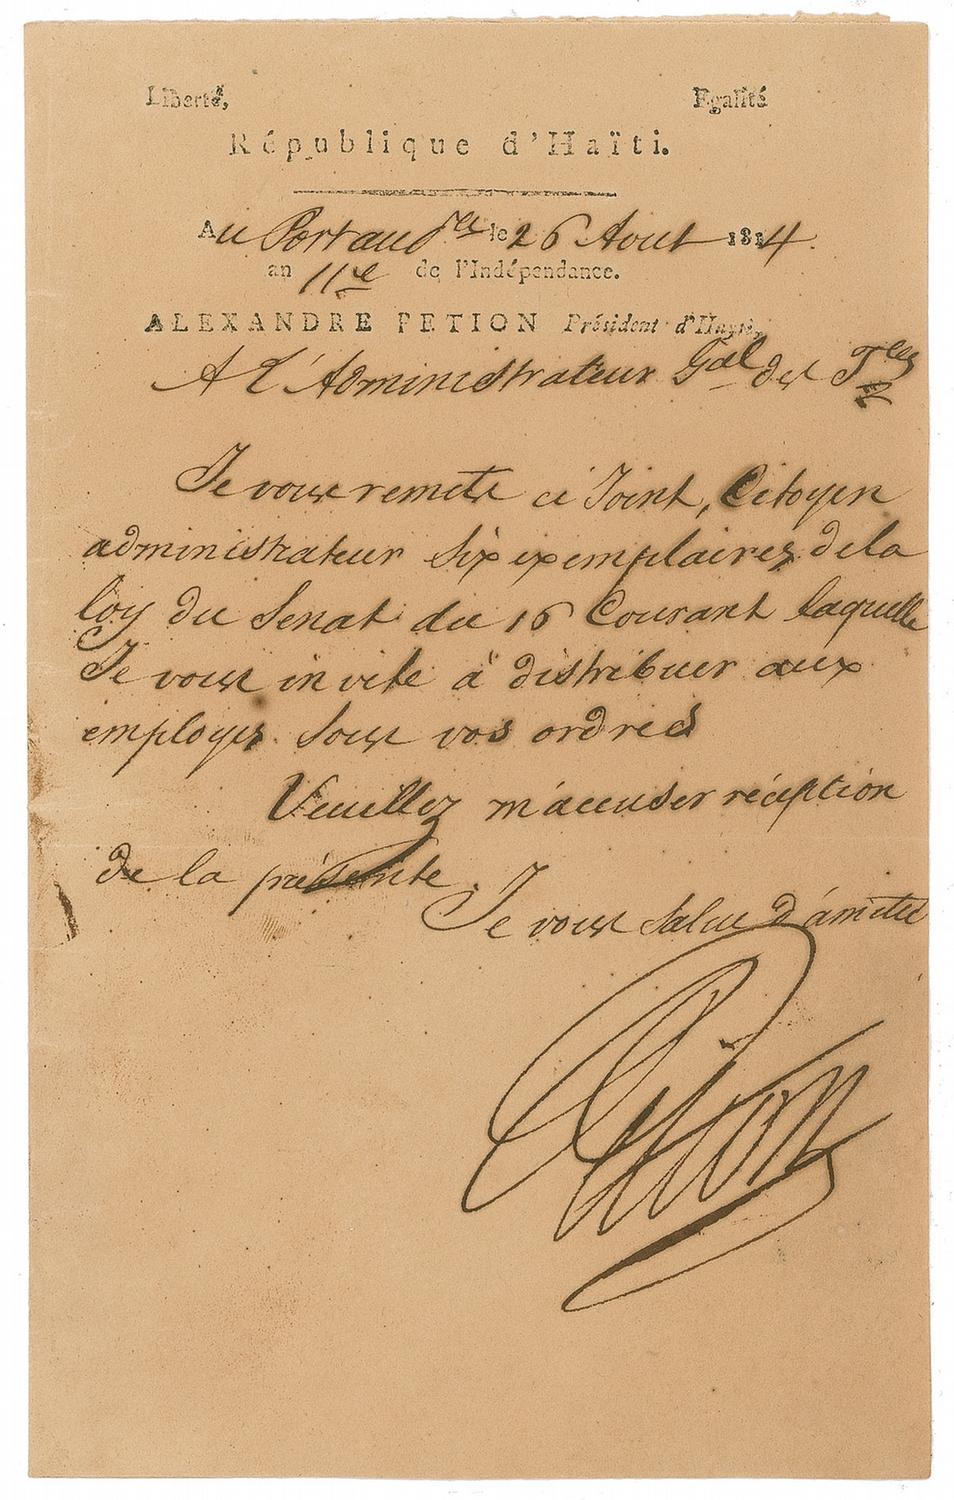 Liberté, Egalité
République d'Haïti.
Au Port au Pce le 26 Aout 1814.
an 11e de l'Indépendance.
ALEXANDRE PETION Président d'Hayti,
A L'Administrateur Gal des
Je vous remets ci Joint, Citoyen
administrateur Six exemplaires de la
loy du Senat du 16 Courant laquelle
Je vous invite à distribuer aux
employés sous vos ordres
Veuillez m'accuser réception
de la présente.
Je vous salue d'amitié
Pétion